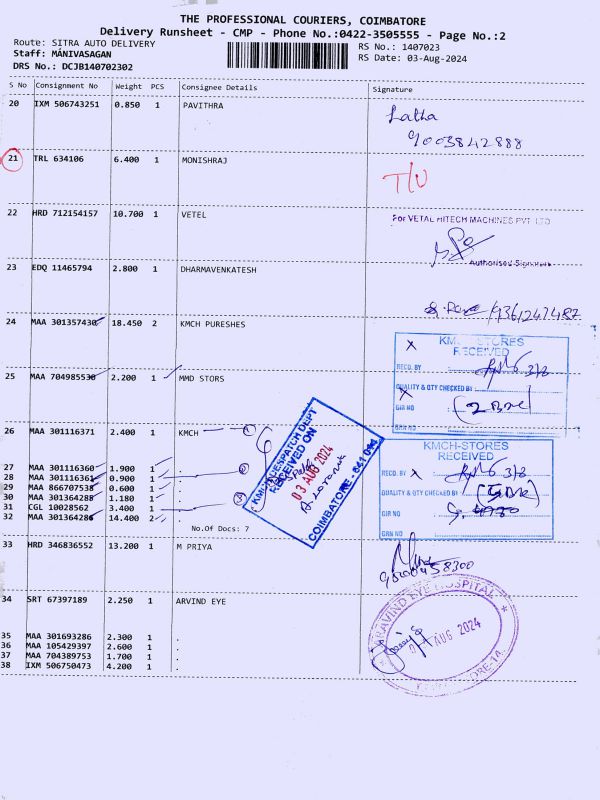 THE PROFESSIONAL COURIERS, COIMBATORE
Delivery Runsheet - CMP - Phone No.:0422-3505555 - Page No.:2
Route: SITRA AUTO DELIVERY
RS No.: 1407023
Staff: MANIVASAGAN
RS Date: 03-Aug-2024
DRS No.: DCJB140702302
S No Consignment No Weight PCS Consignee Details Signature
20 IXM 506743251 0.850 1 PAVITHRA
Latha
9003842888
21 TRL 634106 6.400 1 MONISHRAJ
T/U
22 HRD 712154157 10.700 1 VETEL
For VETAL HITECH MACHINES PVT LTD
Authorised Signature
23 EDQ 11465794 2.800 1 DHARMAVENKATESH
24 MAA 301357430 18.450 2 KMCH PURESHES
KMCH-STORES
RECEIVED
RECD. BY 3/8
QUALITY & QTY CHECKED BY
GIR NO
GRN NO
25 MAA 704985530 2.200 1 MMD STORS
26 MAA 301116371 2.400 1 KMCH
KMCH DESPATCH DEPT
RECEIVED ON
03 AUG 2024
COIMBATORE - 641 014
KMCH-STORES
RECEIVED
RECD. BY 3/8
QUALITY & QTY CHECKED BY
GIR NO
GRN NO
27 MAA 301116360 1.900 1 .
28 MAA 301116361 0.900 1 .
29 MAA 866707535 0.600 1 .
30 MAA 301364285 1.180 1 .
31 CGL 10028562 3.400 1 .
32 MAA 301364286 14.400 2 .
No.Of Docs: 7
33 HRD 346836552 13.200 1 M PRIYA
34 SRT 67397189 2.250 1 ARVIND EYE
ARAVIND EYE HOSPITAL
AUG 2024
35 MAA 301693286 2.300 1 .
36 MAA 105429397 2.600 1 .
37 MAA 704389753 1.700 1 .
38 IXM 506750473 4.200 1 .